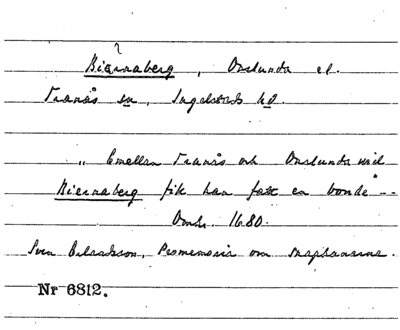 ?
Biernaberg, Onslunda el.
Tranås sn, Ingelstads hd.
„ Emellan Tranås och Onslunda wid
Biernaberg fik han fatt en bonde --
Omkr. 1680.
Sven Erlandsson, om snaphanarne.
Nr 6812.